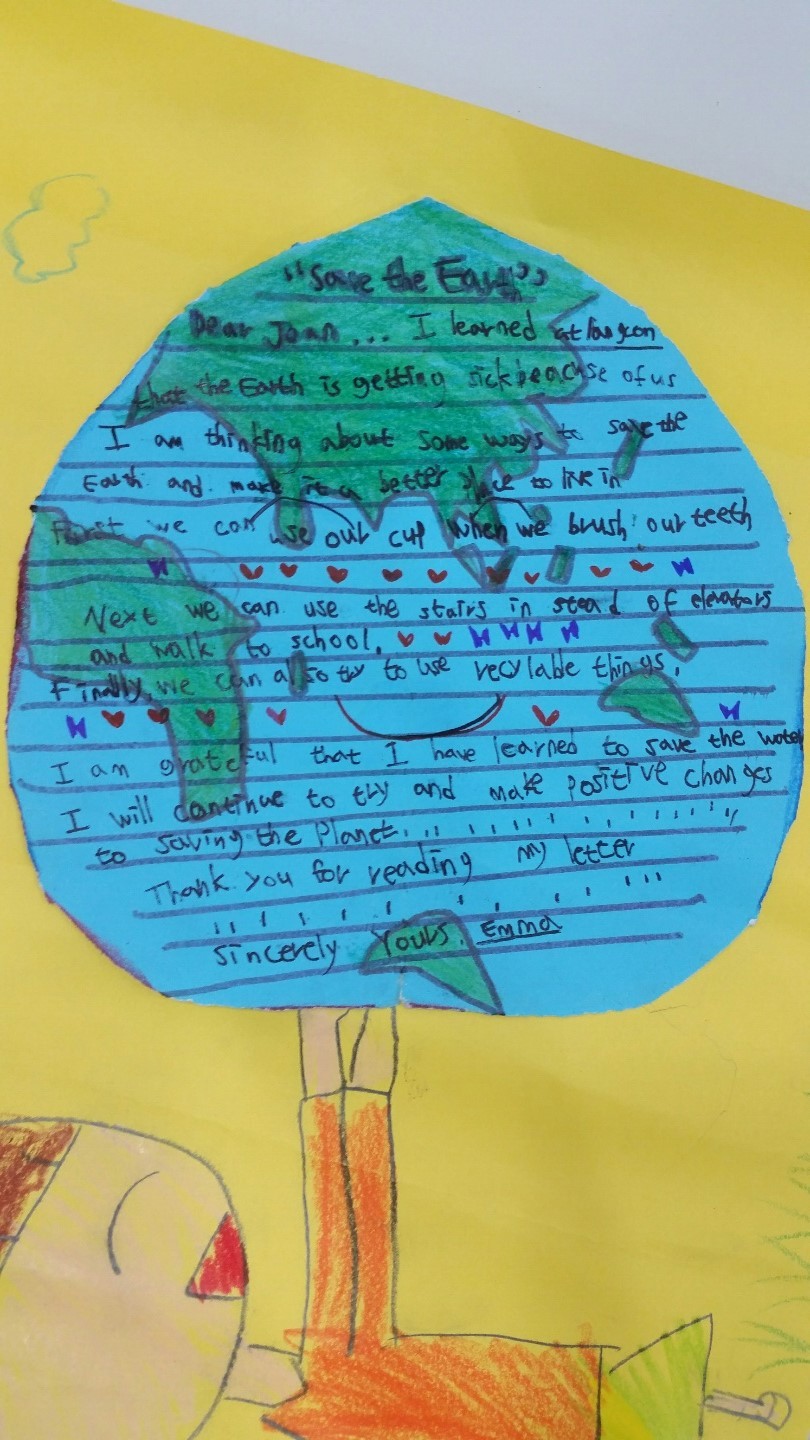 "Save the Earth"
Dear Joan... I learned at
that the Earth is getting sick beacuse of us
I am thinking about some ways to save the
Earth and make it a better place to live in
First we can use our cup when we brush our teeth
Next we can use the stairs in stead of elevators
and walk to school.
Finally, we can also try to use recylable things.
I am grateful that I have learned to save the water
I will continue to try and make positive changes
to saving the Planet...
Thank you for reading my letter
Sincerely Yours. Emma